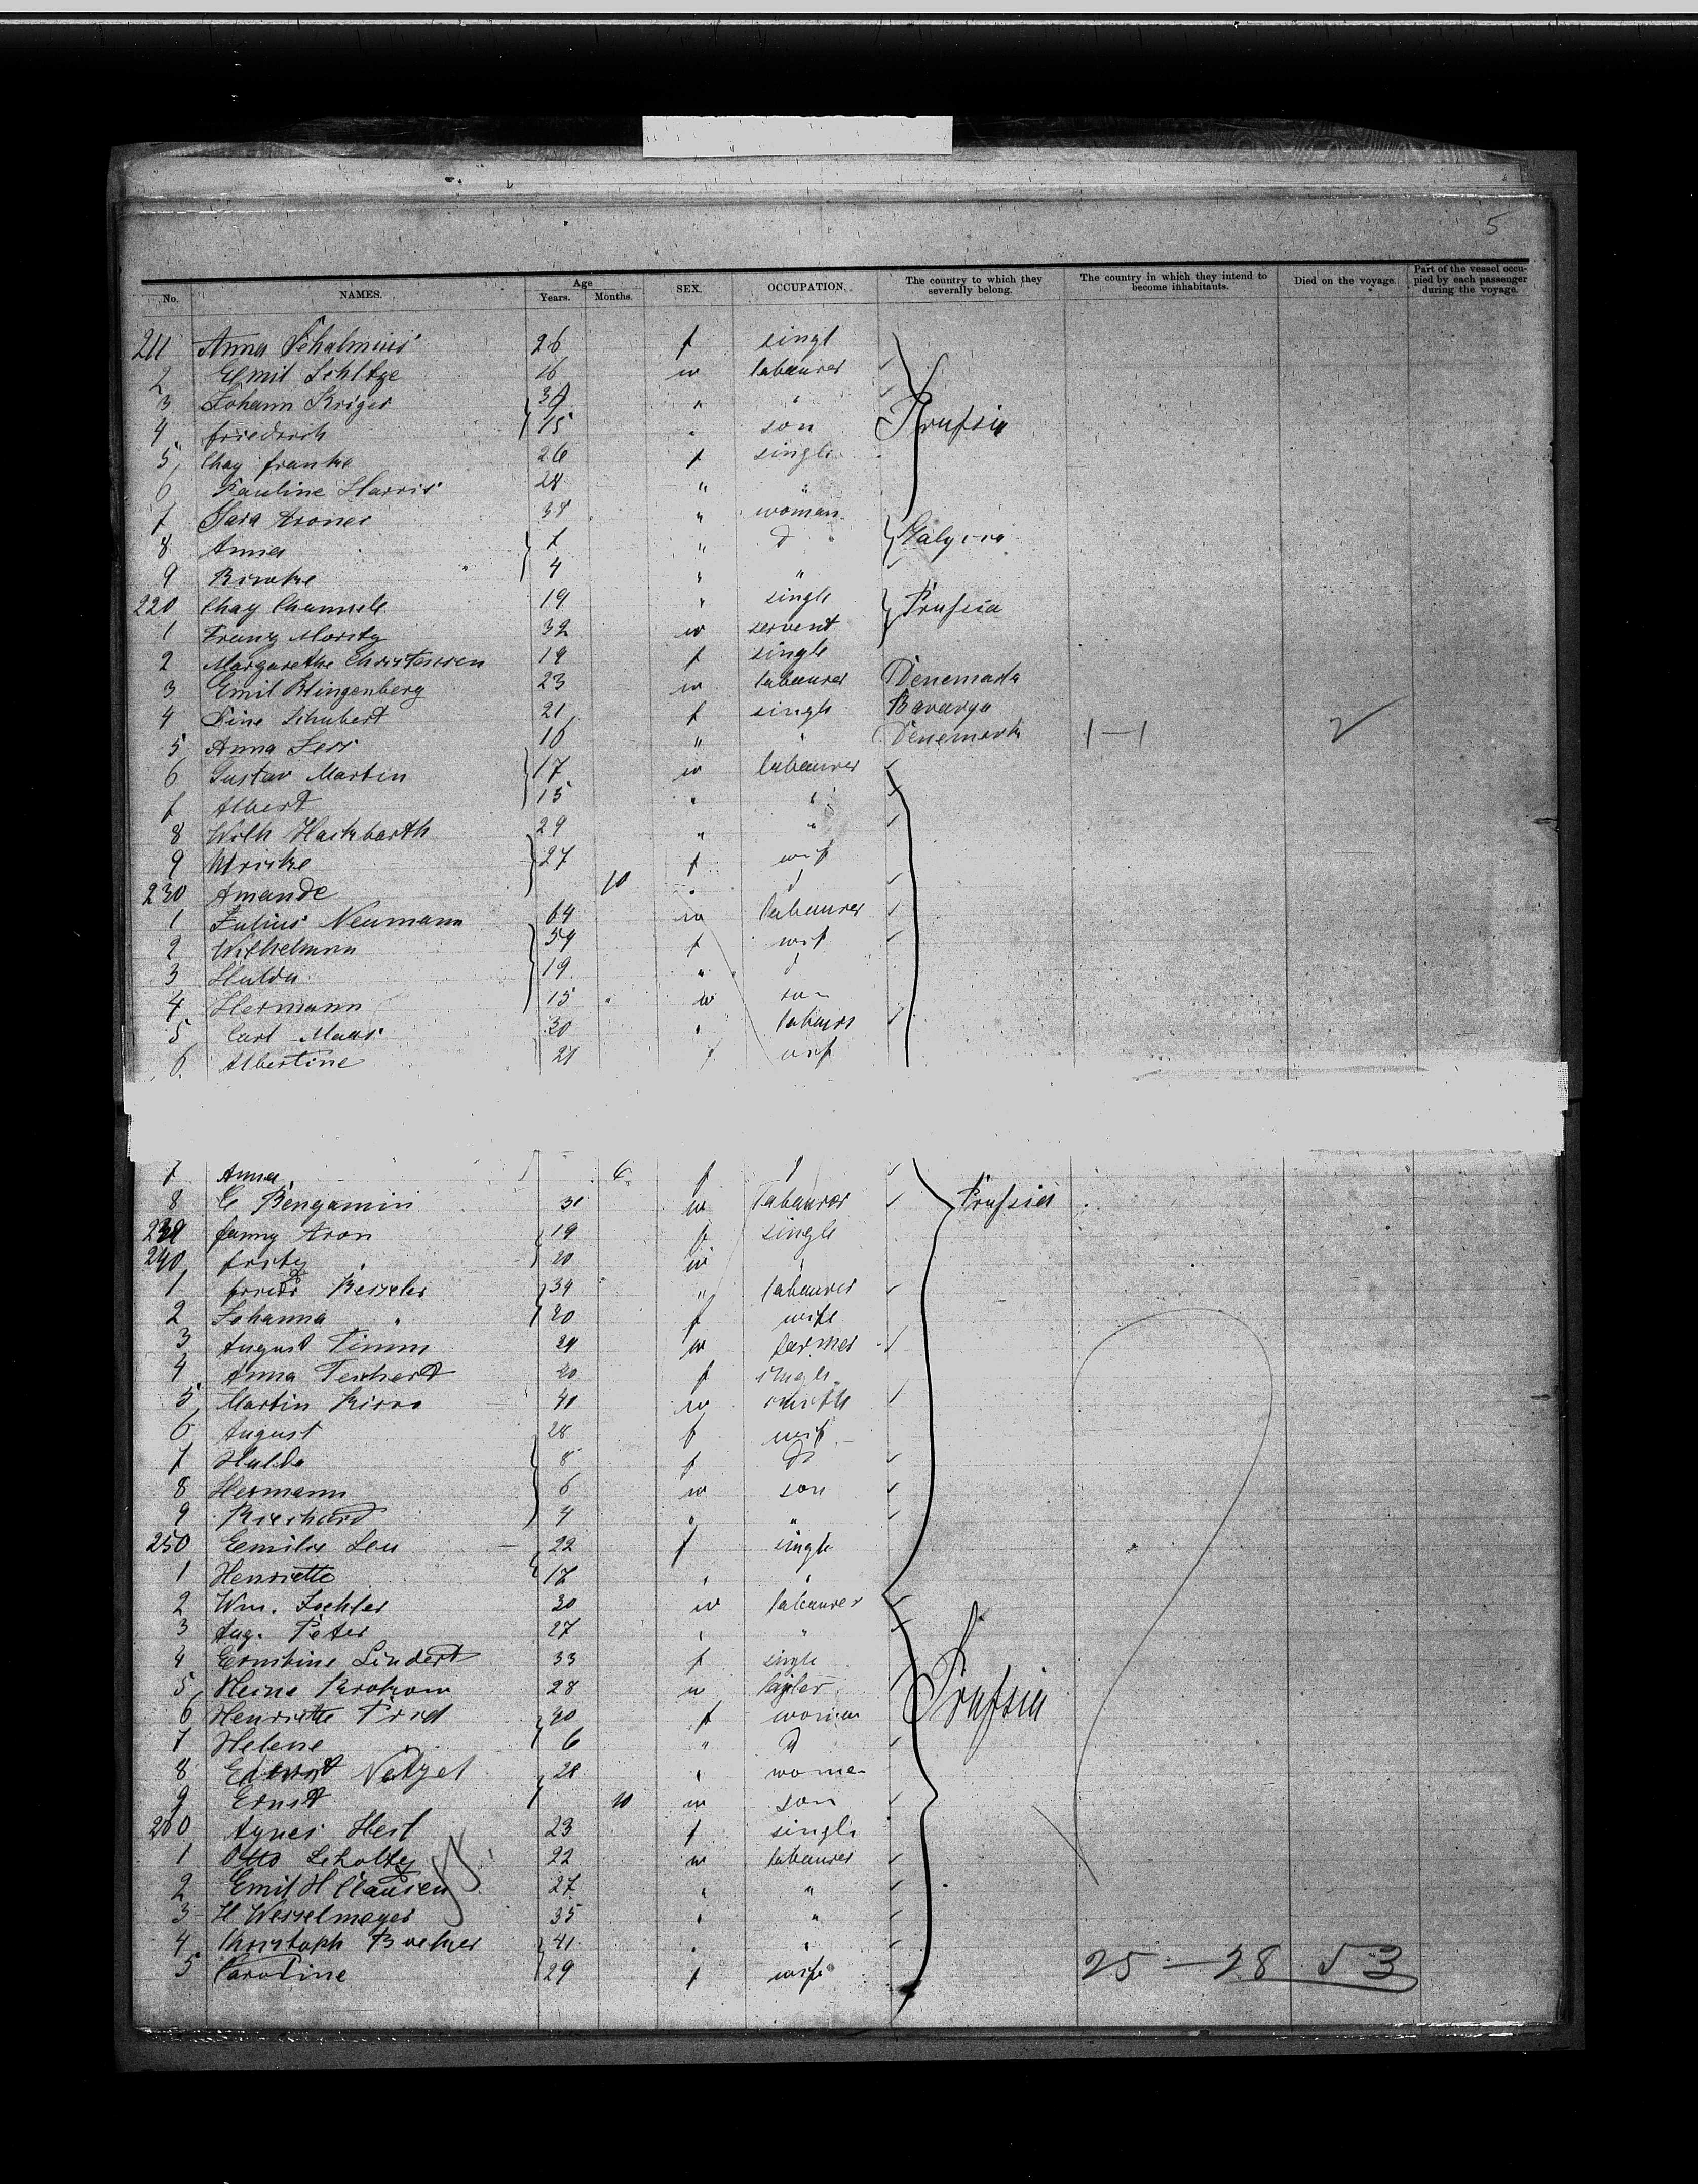 5
No. NAMES. Age Years. Months. SEX. OCCUPATION. The country to which they severally belong. The country in which they intend to become inhabitants. Died on the voyage. Part of the vessel occupied by each passenger during the voyage.
211 Anna 26 f singl
2 Emil 16 m labaurer
3 Johann Kriger " "
4 friedrich 15 " son Prussia
5 Chay franke 26 f single
6 Pauline Harris 28 " "
7 Sara Aroner 38 " woman
8 Anna 7 " d
9 4 " "
220 Chay 19 " single Prussia
1 Franz Moritz 32 m servent
2 Margarethe Christensen 19 f single
3 Emil Klingenberg 23 m labaurer Denemark
4 Line Schubert 21 f single Bavarya
5 Anna 16 " " Denemark 1-1 2
6 Gustav Martin 17 m labaurer
7 Albert 15 " "
8 Wilh Hackbarth 29 " "
9 Ulricke 27 f wif
230 Amande 10 " d
1 Julius Neumann 64 m labaurer
2 Wilhelmina 59 f wif
3 Hulda 19 " d
4 Hermann 15 m son
5 Carl Maas 30 " labaurr
6 Albertine 21 f wif
7 Anna " 6 f d
8 C Bengamin 31 m labaurer Prussia
239 fanny Aron 19 f single
240 fritz " 20 m "
1 friedr Kessler 34 " labaurer
2 Johanna " 20 f wife
3 August Timm 24 m farmer
4 Anna 20 f single
5 Martin 40 m smith
6 August 28 f wif
7 Hulda 8 f d
8 Hermann 6 m son
9 Richard 4 " "
250 Emilie Leu 22 f single
1 Henriette " "
2 Wm. 30 m labaurer
3 Aug. Peter 27 " "
4 Ernstine Lindert 33 f single
5 Heine Krokow 28 m Prussia
6 Henriette 20 f woman
7 Helene " 6 " d
8 Netzel 28 " woman
9 Ernst 10 m son
260 Agnes 23 f single
1 Otto Scholtz 22 m labaurer
2 Emil H Clausen 27 " "
3 H Wesselmayer 35 " "
4 Christoph 41 " "
5 Caroline 29 f wife
25 — 28 53